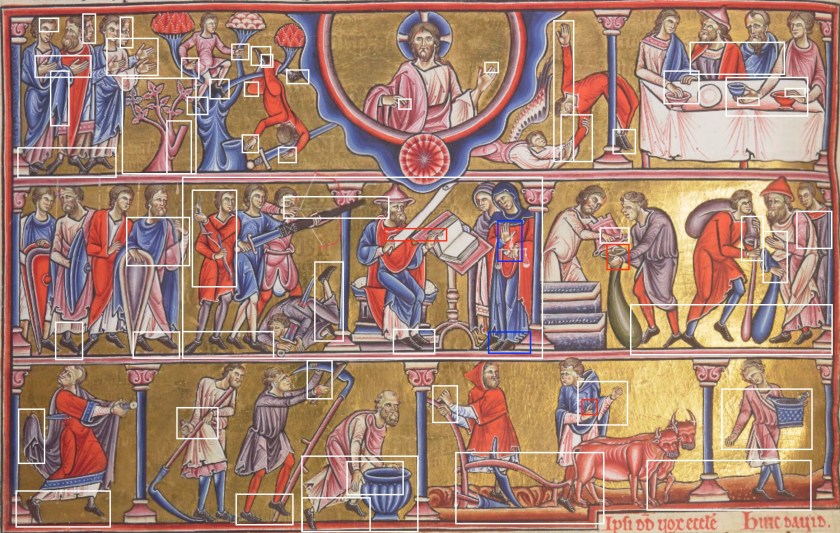 Ipsi dd vox ecclē hinc david.